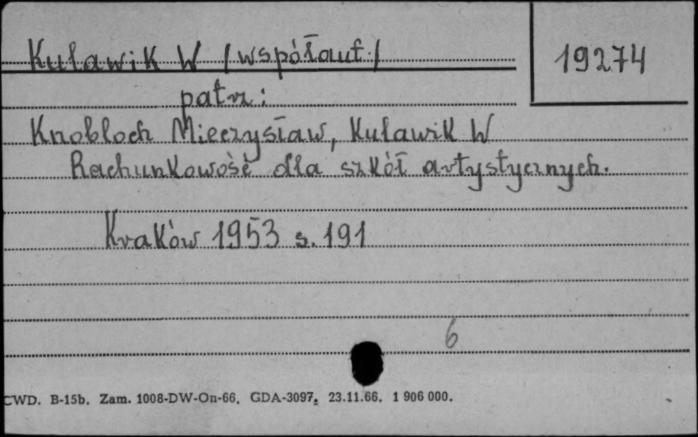 Kuławik W /współaut/
19274
patrz:
Knobloch Mieczysław, Kuławik W
Rachunkowość dla szkół artystycznych.
Kraków 1953 s. 191
6
CWD. B-15b. Zam. 1008-DW-On-66. GDA-3097. 23.11.66. 1 906 000.